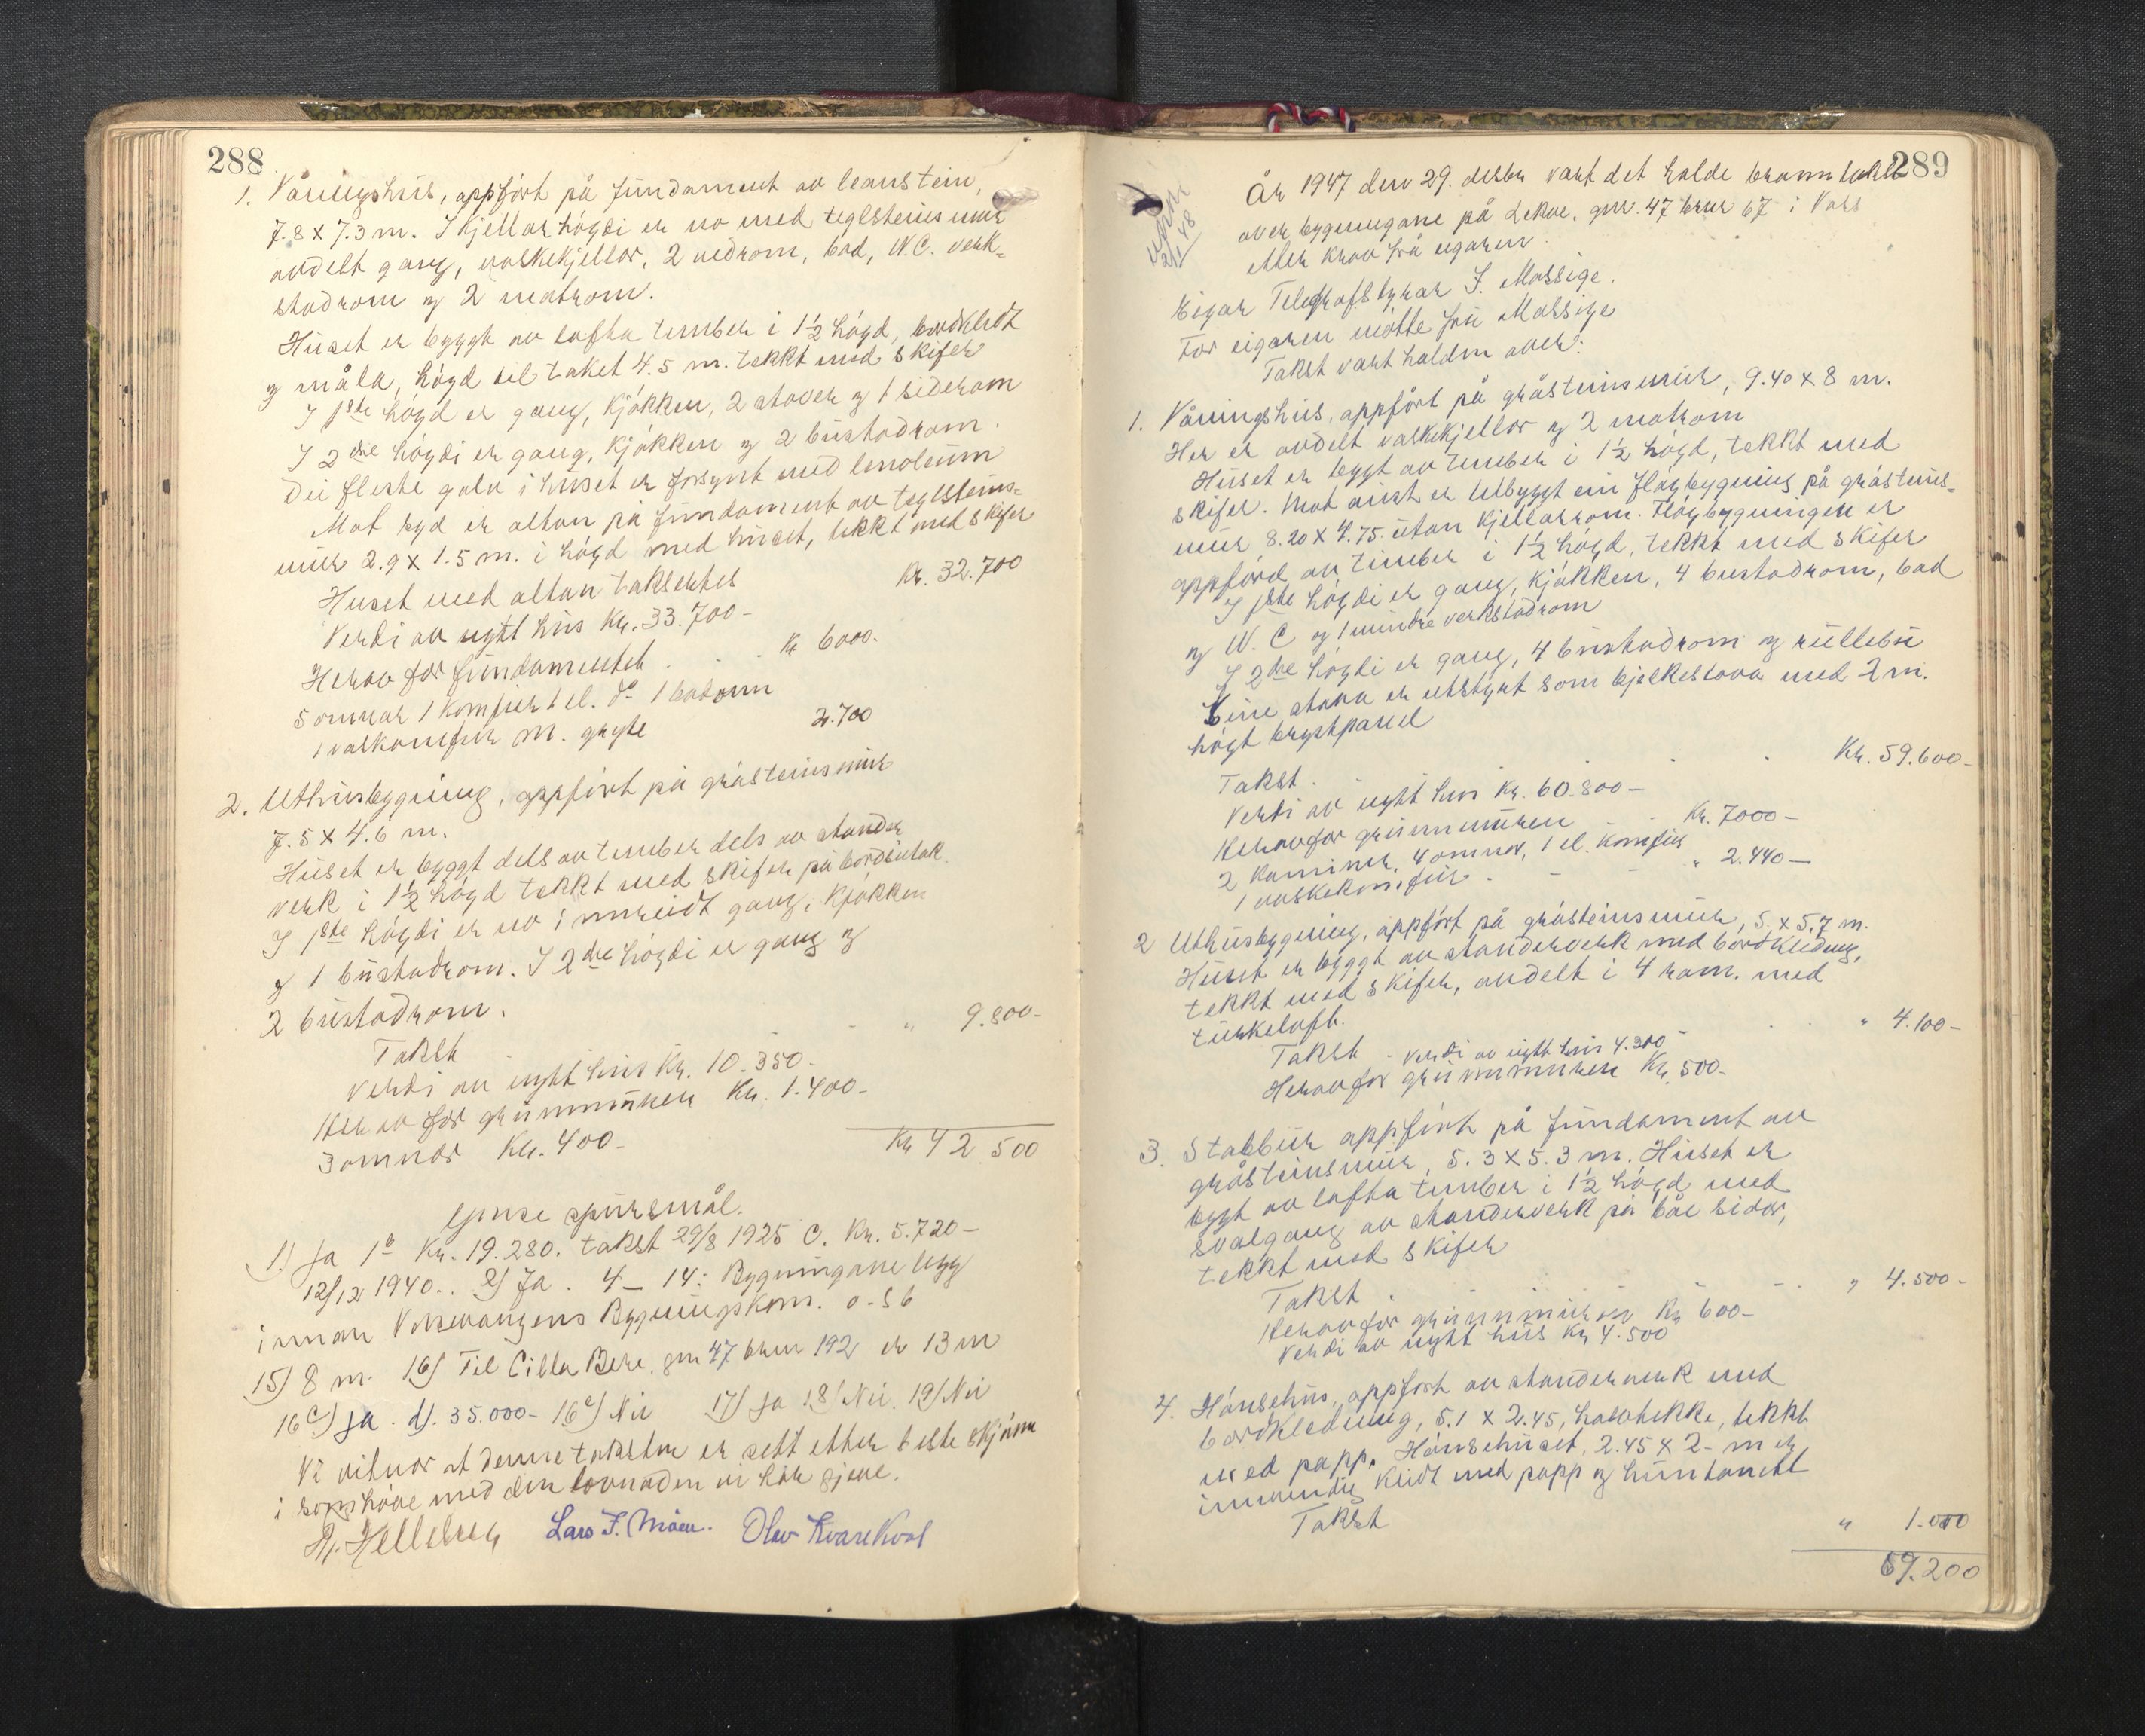 288
1. Våningshus, oppført på fundament av leanstein,
7.8 x 7.3 m. I kjellarhøgdi er no med teglsteins mur
avdelt gang, vaskekjellar, 2 vedrom, bad, W.C. verk-
stadrom og 2 matrom.
Huset er byggt av lafta timber i 1½ høgd, bordkledt
og måla, høgd til taket 4.5 m. tekkt med skifer
I 1ste høgd er gang, kjøkken, 2 stover og 1 siderom
I 2dre høgdi er gang, kjøkken og 2 bustadrom.
Dei fleste golv i huset er forsynt med linoleum
Mot syd er altan på fundament av teglsteins-
mur 2.9 x 1.5 m. i høgd med huset, tekkt med skifer
Huset med altan taksertes Kr. 32.700
Verdi av nytt hus Kr. 33.700-
Herav for fundamentet . . . Kr 6000.
5 omnar 1 komfur 1 el. do 1 badomn
1 vaskomfur m. gryte 2.700
2. Uthusbygning, oppført på gråsteinsmur
7.5 x 4.6 m.
Huset er byggt dels av timber dels av stender
verk i 1½ høgd tekkt med skifer på bordsutak
I 1ste høgdi er no innreidt gang, kjøkken
og 1 bustadrom. I 2dre høgdi er gang og
2 bustadrom.
Takst - " 9.800-
Verdi av nytt hus Kr. 10.350-
Herav for grunnmuren Kr. 1.400-
3 omnar Kr. 400-
Kr 42.500
Ymse spursmål.
1) Ja 1b Kr. 19.280. takst 29/8 1925 c. Kr. 5.720-
12/12 1940.. 2) Ja. 4 - 14: Bygningane ligg
innan Vossevangens Bygningskom. o-s b
15) 8 m. 16) Til Cilla Bere, gnr 47 brnr 192 er 13 m
16c) Ja. d). 35.000- 16e) Nei 17) Ja 18) Nei. 19) Nei
Vi vitnar at denne taksten er sett etter beste skjønn
i samhøve med den lovnaden vi har gjeve.
Lars F. Møen. Olav Kvarekval
289
År 1947 den 29. desbr vart det halde branntakst
over bygningane på Lekve, gnr. 47 brnr 67 i Voss
etter krav frå eigaren.
Eigar Telegrafstyrar J. Massige.
For eigaren møtte fru Massige
Takst vart halden over:
1. Våningshus, oppført på gråsteinsmur, 9.40 x 8 m.
Her er avdelt vaskekjellar og 2 matrom
Huset er bygt av timber i 1½ høgd, tekkt med
skifer. Mot aust er utbyggt ein fløybygning på gråsteins-
mur 8.20 x 4.75 utan kjellarrom. Fløybygningen er
oppførd av timber i 1½ høgd, tekkt med skifer
I 1ste høgdi er gang, kjøkken, 4 bustadrom, bad
og W.C og 1 mindre verkstadrom
I 2dre høgdi er gang, 4 bustadrom og rullebu
Eine stova er utstyrt som bjelkestova med 2 m.
høgt brystpanel
Takst . . . Kr. 59.600-
Verdi av nytt hus Kr. 60.800-
Herav for grunnmuren - - Kr. 7000-
2 kaminer, 4 omnar, 1 el. komfur
1 vaskekomfur - - - " 2.440-
2 Uthusbygning, oppført på gråsteinsmur, 5 x 5,7 m.
Huset er byggt av stenderverk med bordkledning,
tekkt med skifer, avdelt i 4 rom. med
turkeloft.
Takst - Verdi av nytt hus 4.300- " 4.100-
Herav for grunnmuren Kr. 500-
3. Stabbur oppført på fundament av
gråsteinsmur, 5.3 x 5.3 m. Huset er
bygt av lafta timber i 1½ høgd med
svalgang av stenderverk på båe sidor,
tekkt med skifer
Takst . - - - " 4.500-
Herav for grunnmuren Kr 600-
Verdi av nytt hus Kr 4.500
4. Hønsehus, oppført av stenderverk med
bordkledning, 5.1 x 2.45, tekkt
med papp. Hønsehuset, 2.45 x 2- m er
innvendig kledt med papp og huntonitt
Takst " 1.000
69.200